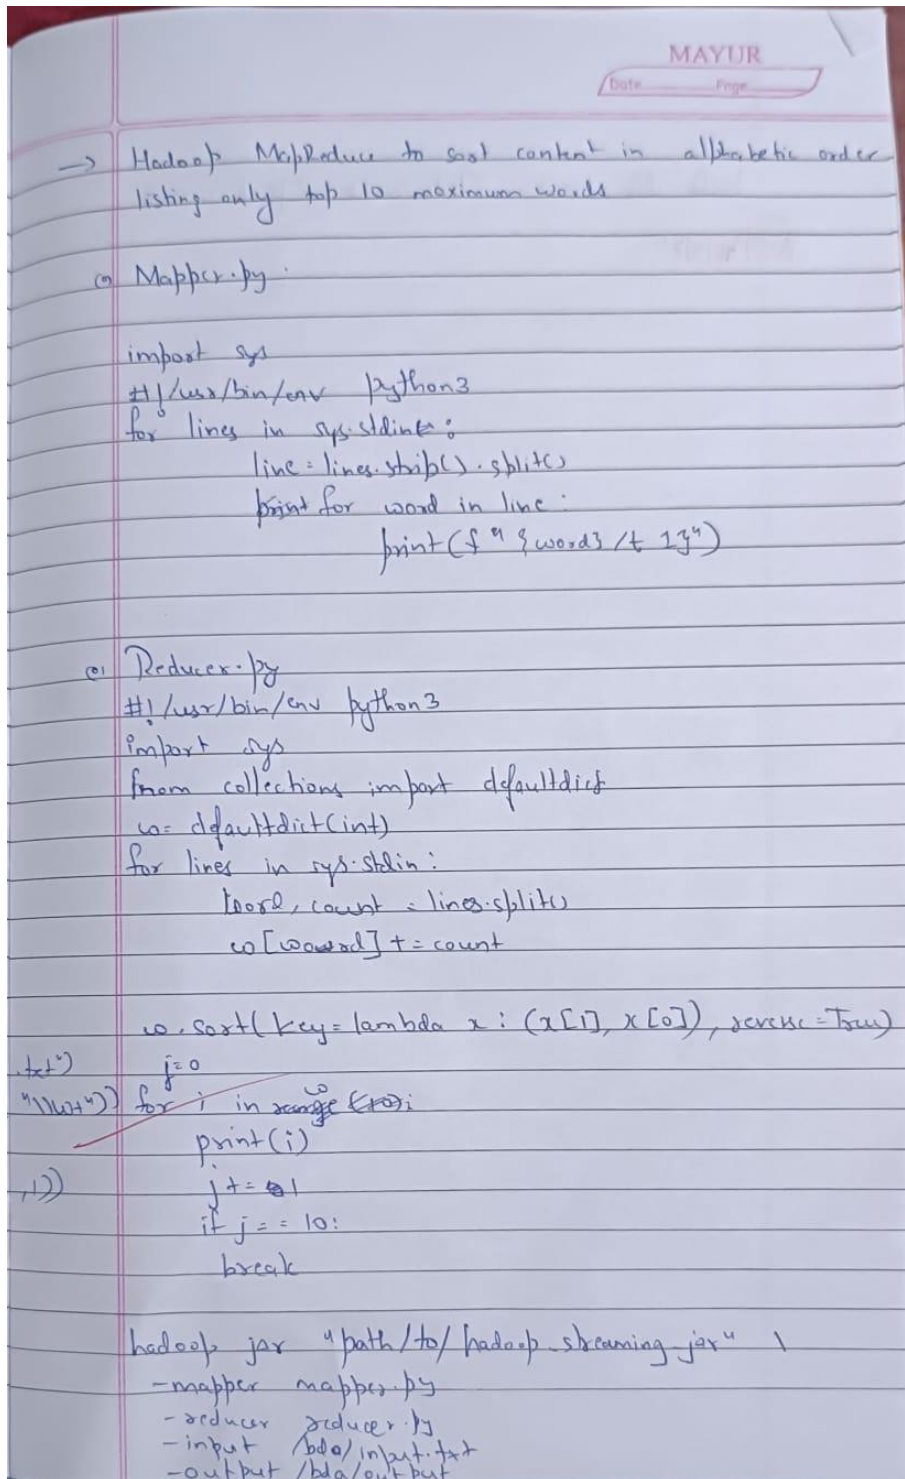 MAYUR
Date Page
→ Hadoop MapReduce to sort content in alphabetic order
listing only top 10 maximum words
Mapper.py
import sys
#!/usr/bin/env python3
for lines in sys.stdin:
line = lines.strip().split()
for word in line:
print(f"{word} /t 1}")
Reducer.py
#!/usr/bin/env python3
import sys
from collections import defaultdict
w= defaultdict(int)
for lines in sys.stdin:
word, count = lines.split()
w[word] += count
w.sort(key=lambda x: (x[1], x[0]), reverse=True)
.txt")
j=0
"\\w+"))
for i in w:
print(i)
,1))
j+=1
if j==10:
break
hadoop jar "path/to/hadoop-streaming-jar" \
-mapper mapper.py
-reducer reducer.py
-input /bda/input.txt
-output /bda/output